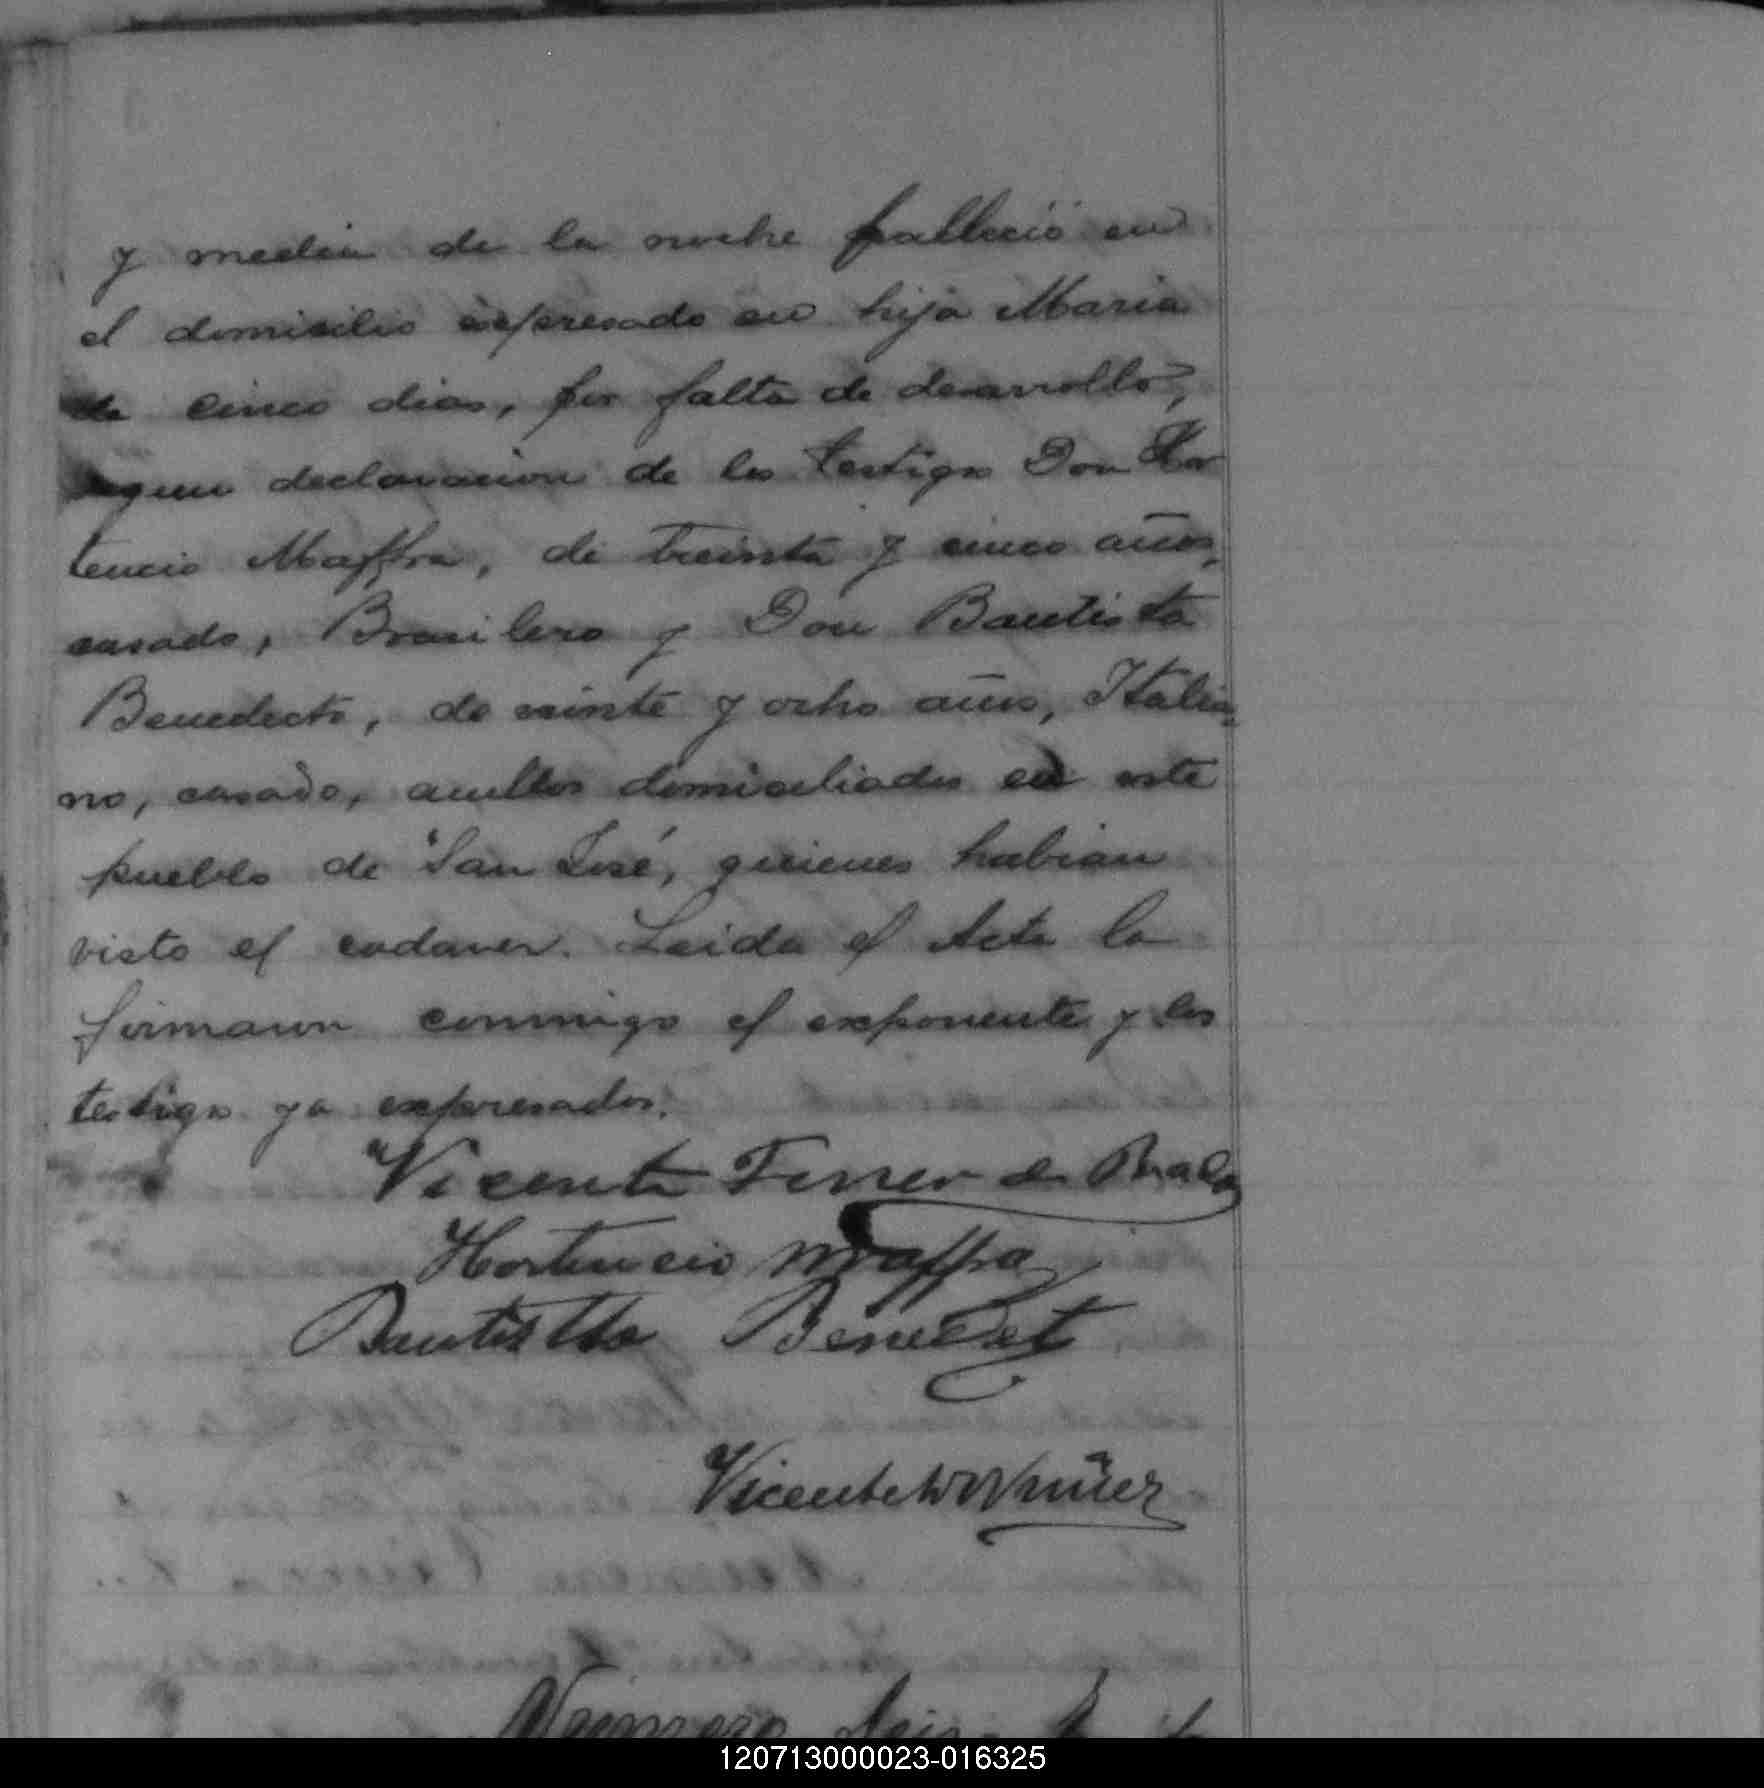 y media de la noche falleció en
el domicilio espresado su hija Maria
de cinco dias, por falta de desarrollo,
segun declaracion de los testigos Don Hor
tencio Maffra, de treinta y cinco años,
casado, Brasilero y Don Bautista
Benedecto, de veinte y ocho años, Italia
no, casado, ambos domiciliados en este
pueblo de San José, quienes habian
visto el cadaver. Leida el Acta la
firmaron conmigo el exponente y los
testigos ya expresados.
Vicente Ferrer de
Hortencio Maffra
Bautista Benedet
Vicente Nuñez
Numero
120713000023-016325